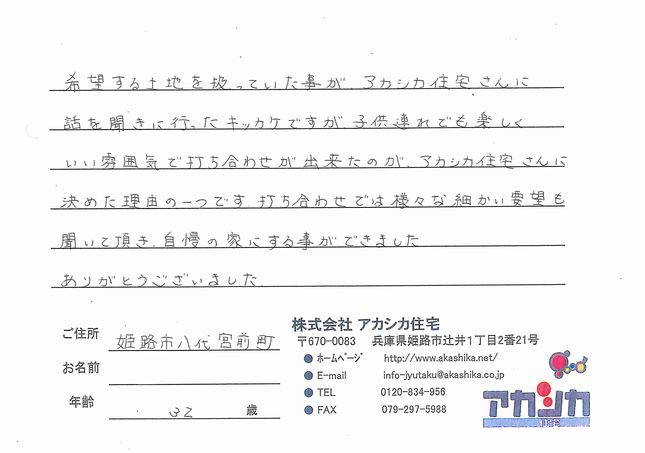 希望する土地を扱っていた事が、アカシカ住宅さんに
話を聞きに行ったキッカケですが、子供連れでも楽しく
いい雰囲気で打ち合わせが出来たのが、アカシカ住宅さんに
決めた理由の一つです。打ち合わせでは様々な細かい要望も
聞いて頂き、自慢の家にする事ができました
ありがとうございました
ご住所 姫路市八代宮前町
お名前
年齢 32 歳
株式会社 アカシカ住宅
〒670-0083 兵庫県姫路市辻井1丁目2番21号
●ホームページ http://www.akashika.net/
●E-mail info-jyutaku@akashika.co.jp
●TEL 0120-834-956
●FAX 079-297-5988
アカシカ
住宅